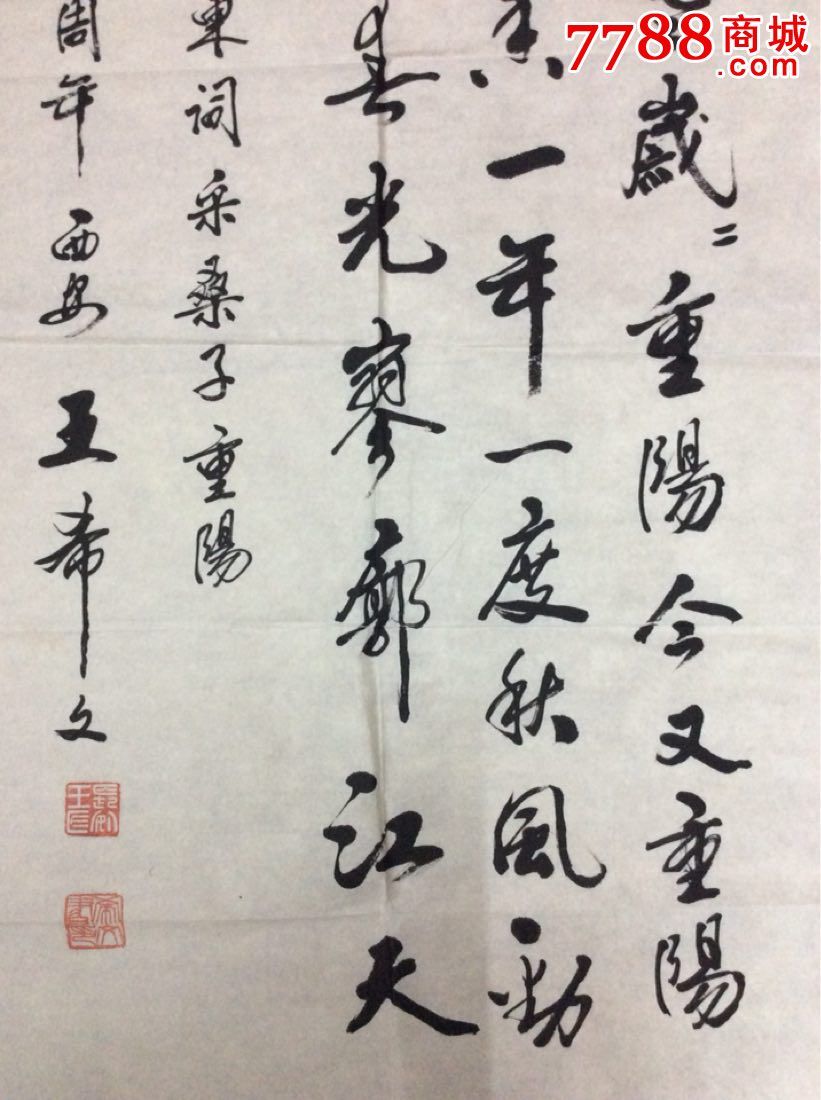 7788商城
.com
歲〻重陽今又重陽
香一年一度秋風勁
春光寥廓江天
東詞采桑子重陽
周年西安王希文